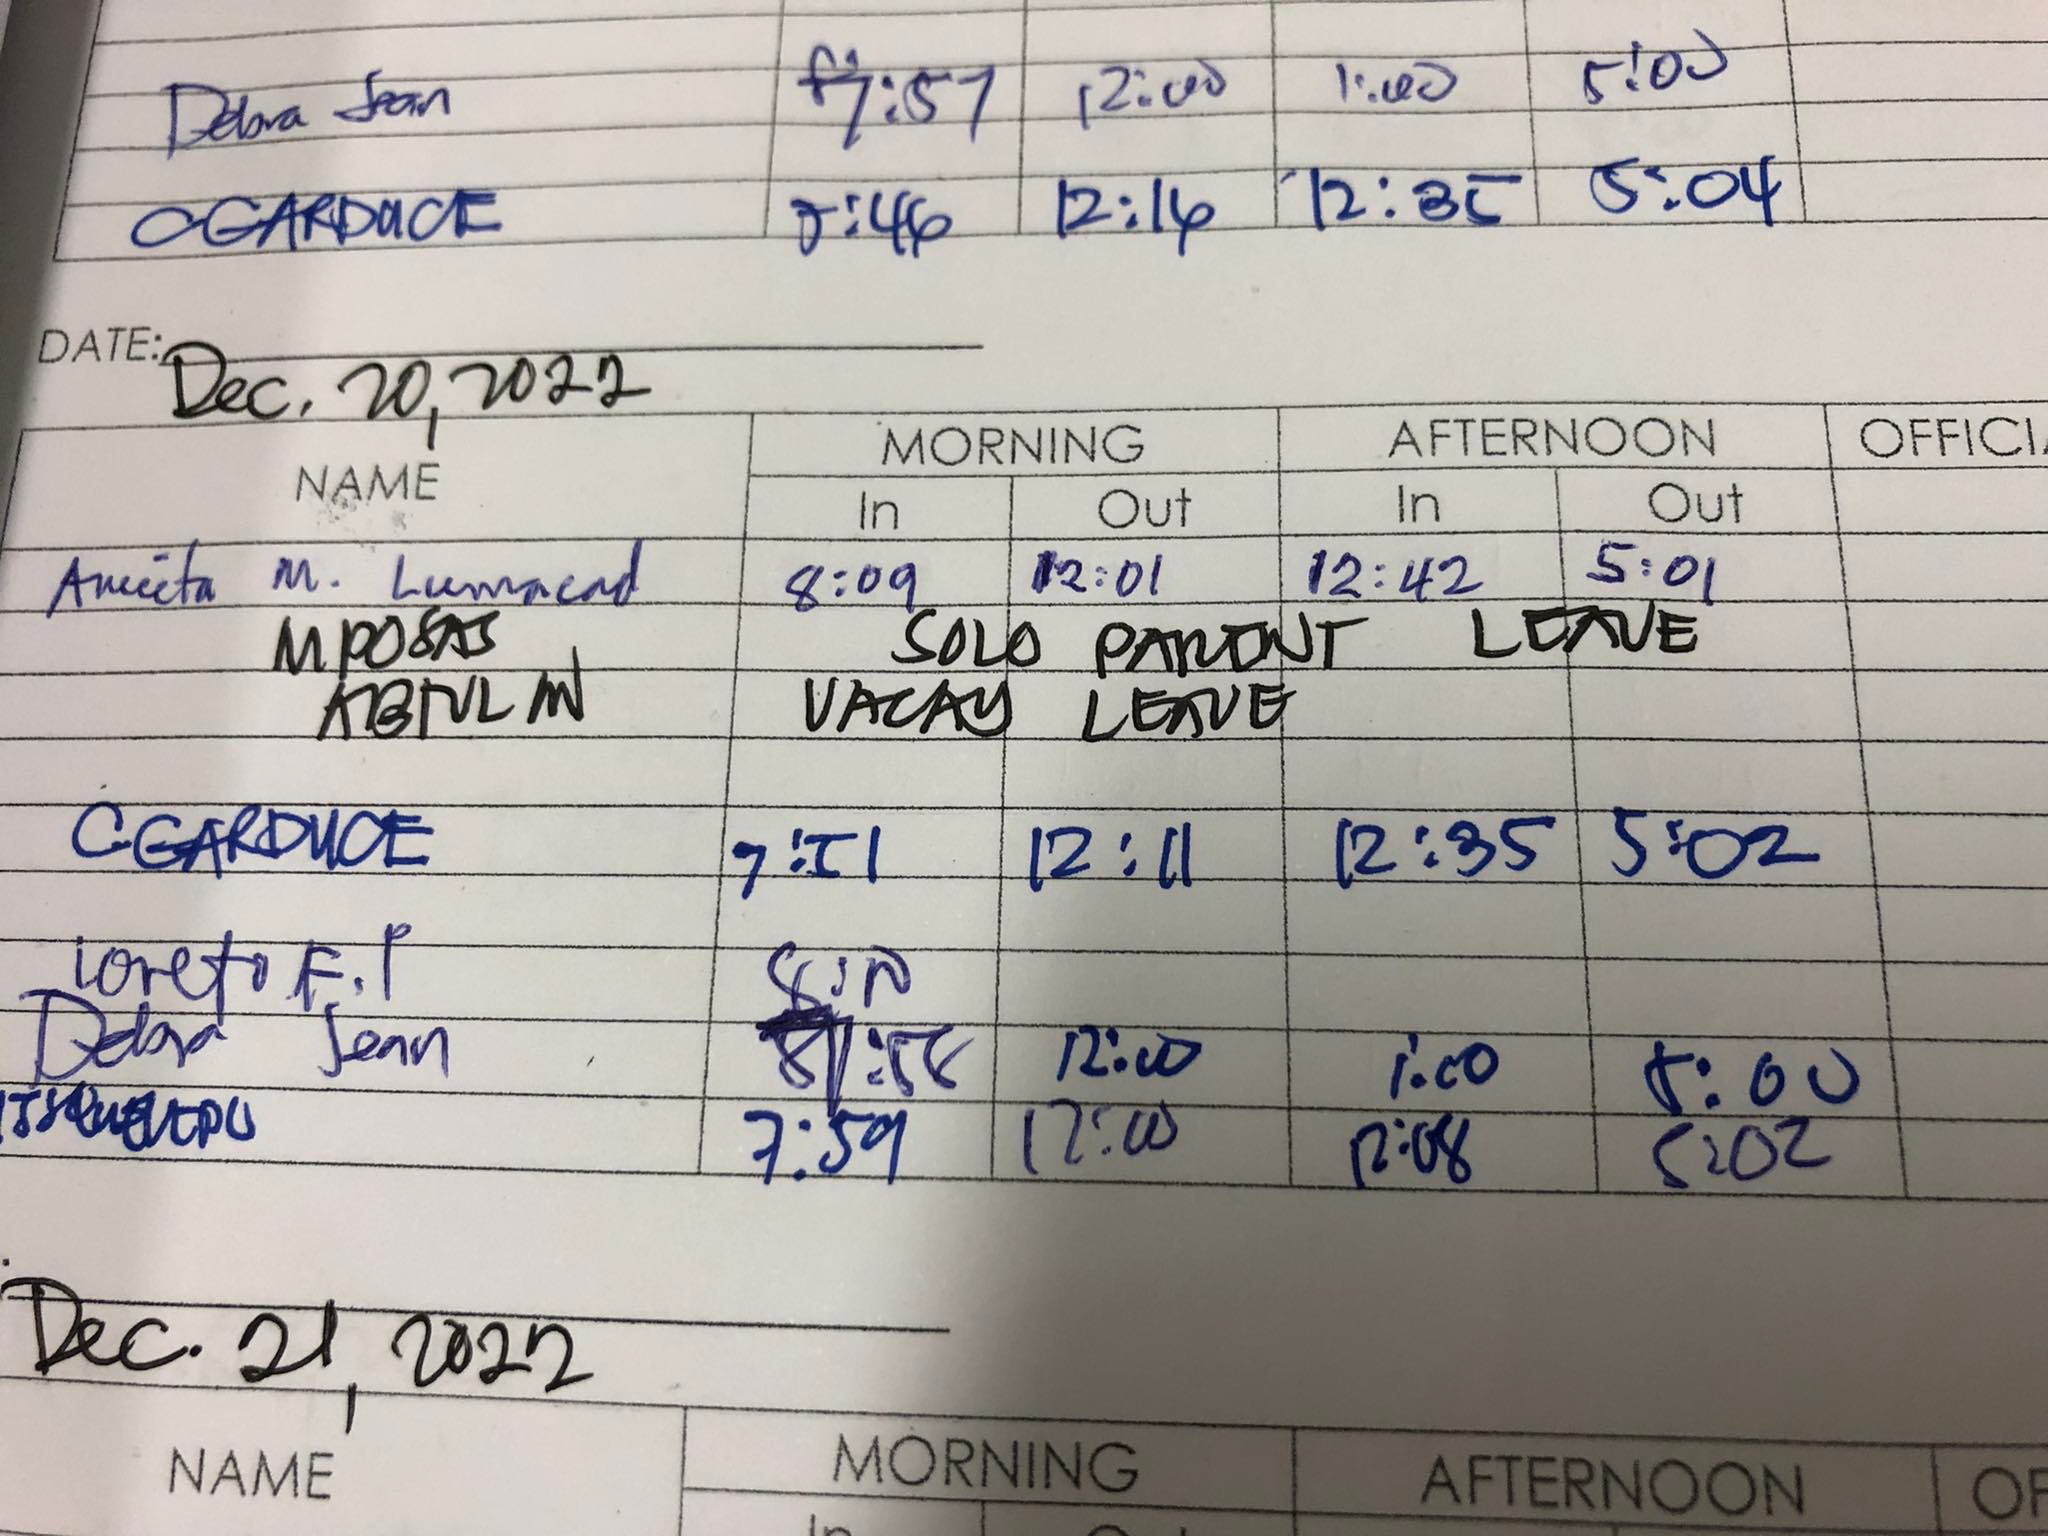 Debra Jean 7:57 12:00 1:00 5:00
CGARDUCE 7:46 12:16 12:35 5:04
DATE: Dec. 20, 2022
NAME MORNING AFTERNOON
In Out In Out
Anecita M. Lumacad 8:09 12:01 12:42 5:01
MPOSAS SOLO PARENT LEAVE
VACAY LEAVE
C.GARDUCE 7:51 12:11 12:35 5:02
Loreto F.P
Debra Jean 7:58 12:00 1:00 5:00
7:59 12:00 12:08 5:02
Dec. 21, 2022
NAME MORNING AFTERNOON
In